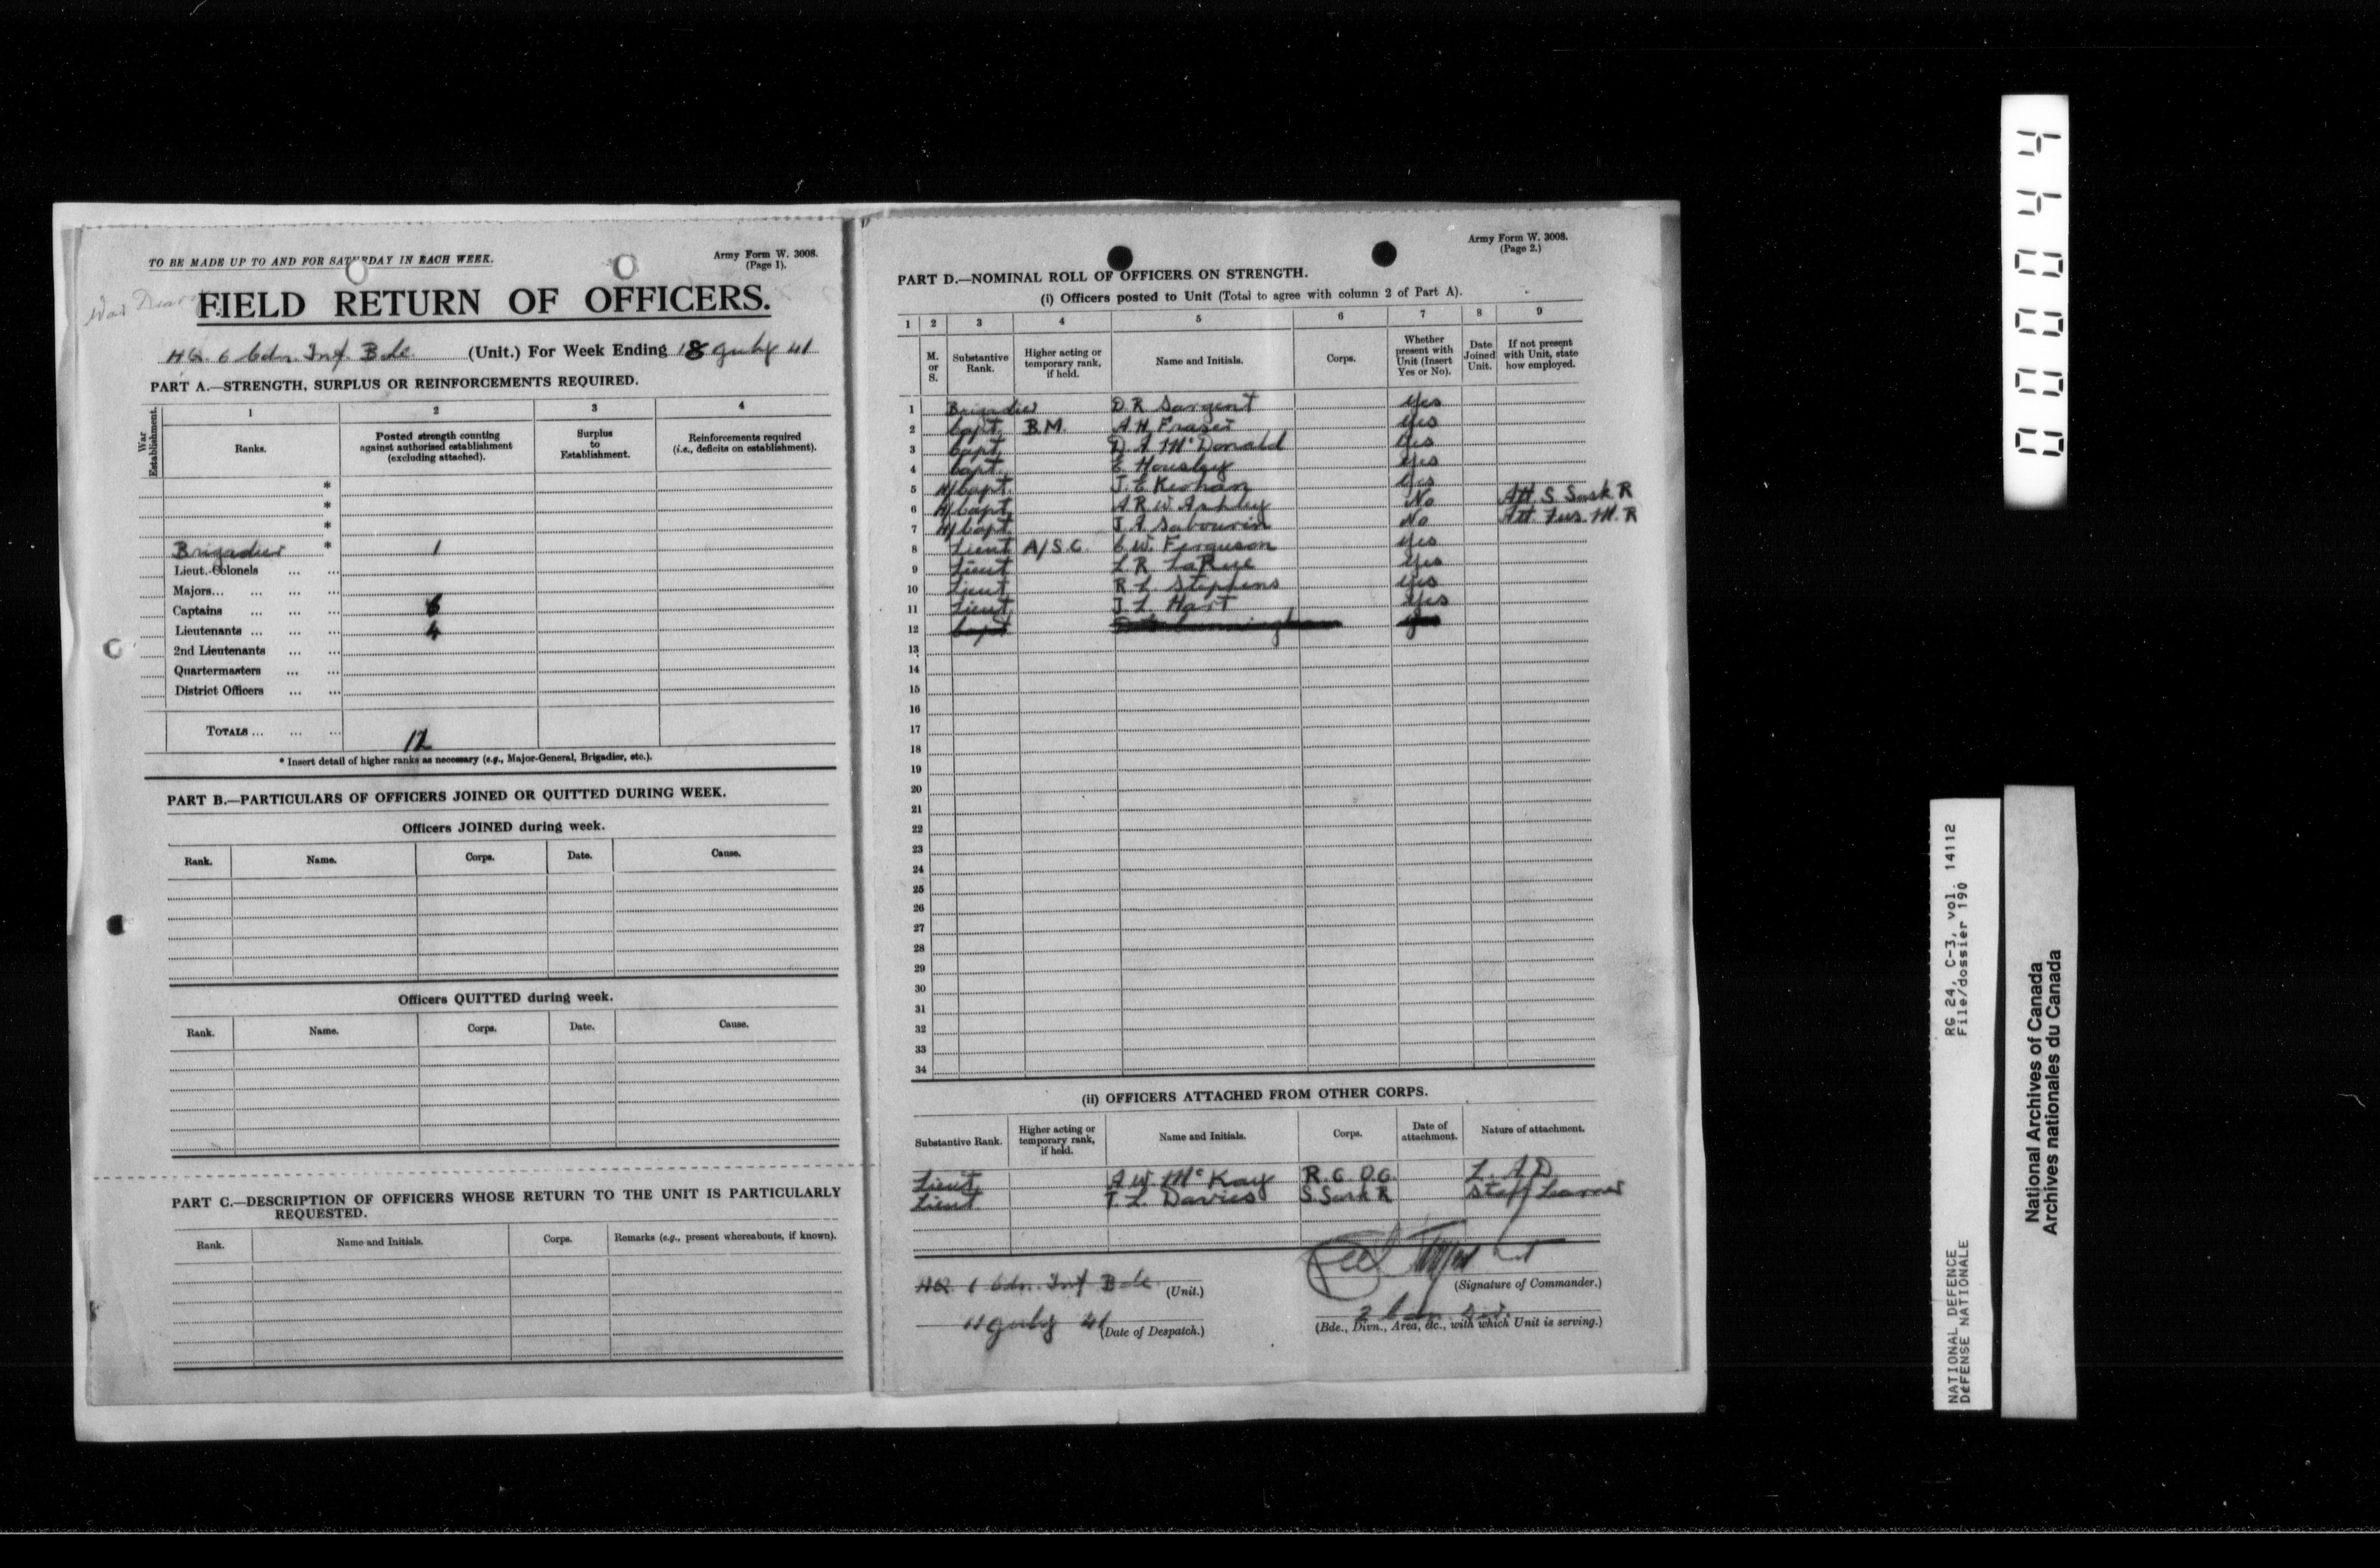 TO BE MADE UP TO AND FOR SATURDAY IN EACH WEEK.
Army Form W. 3008.
(Page 1).
War Diary
FIELD RETURN OF OFFICERS.
HQ. 6 Cdn. Inf. Bde. (Unit.) For Week Ending 18 July 41
PART A.—STRENGTH, SURPLUS OR REINFORCEMENTS REQUIRED.
War Establishment.
1 2 3 4
Ranks. Posted strength counting against authorised establishment (excluding attached). Surplus to Establishment. Reinforcements required (i.e., deficits on establishment).
*
*
*
Brigadier * 1
Lieut.-Colonels ... ...
Majors... ... ... ...
Captains ... ... ... 6
Lieutenants ... ... ... 4
2nd Lieutenants ... ...
Quartermasters ... ...
District Officers ... ...
TOTALS ... ... ... 12
* Insert detail of higher ranks as necessary (e.g., Major-General, Brigadier, etc.).
PART B.—PARTICULARS OF OFFICERS JOINED OR QUITTED DURING WEEK.
Officers JOINED during week.
Rank. Name. Corps. Date. Cause.
Officers QUITTED during week.
Rank. Name. Corps. Date. Cause.
PART C.—DESCRIPTION OF OFFICERS WHOSE RETURN TO THE UNIT IS PARTICULARLY
REQUESTED.
Rank. Name and Initials. Corps. Remarks (e.g., present whereabouts, if known).
Army Form W. 3008.
(Page 2.)
PART D.—NOMINAL ROLL OF OFFICERS ON STRENGTH.
(i) Officers posted to Unit (Total to agree with column 2 of Part A).
1 2 3 4 5 6 7 8 9
M. or S. Substantive Rank. Higher acting or temporary rank, if held. Name and Initials. Corps. Whether present with Unit (Insert Yes or No). Date Joined Unit. If not present with Unit, state how employed.
1 Brigadier D.R. Sargent Yes
2 Capt. B.M. A.H. Fraser Yes
3 Capt. D.A. McDonald Yes
4 Capt. E. Housley Yes
5 H/Capt. J.E. Keohan Yes
6 H/Capt. A R W Ashley No Att S Sask R
7 H/Capt. J.A. Sabourin No Att. Fus. M. R
8 Lieut A/S.C. C.W. Ferguson Yes
9 Lieut L.R. LaRue Yes
10 Lieut R L Stephens Yes
11 Lieut J.L. Hart Yes
12 Capt Cunningham Yes
13
14
15
16
17
18
19
20
21
22
23
24
25
26
27
28
29
30
31
32
33
34
(ii) OFFICERS ATTACHED FROM OTHER CORPS.
Substantive Rank. Higher acting or temporary rank, if held. Name and Initials. Corps. Date of attachment. Nature of attachment.
Lieut A.W. McKay R.C.O.C. L.A.D.
Lieut T.L. Davies S.Sask R Staff Learner
HQ 6 Cdn. Inf Bde (Unit.)
(Signature of Commander.)
July 41 (Date of Despatch.)
2 Can. Div.
(Bde., Divn., Area, etc., with which Unit is serving.)
000044
RG 24, C-3, vol. 14112
File/dossier 190
NATIONAL DEFENCE
DÉFENSE NATIONALE
National Archives of Canada
Archives nationales du Canada